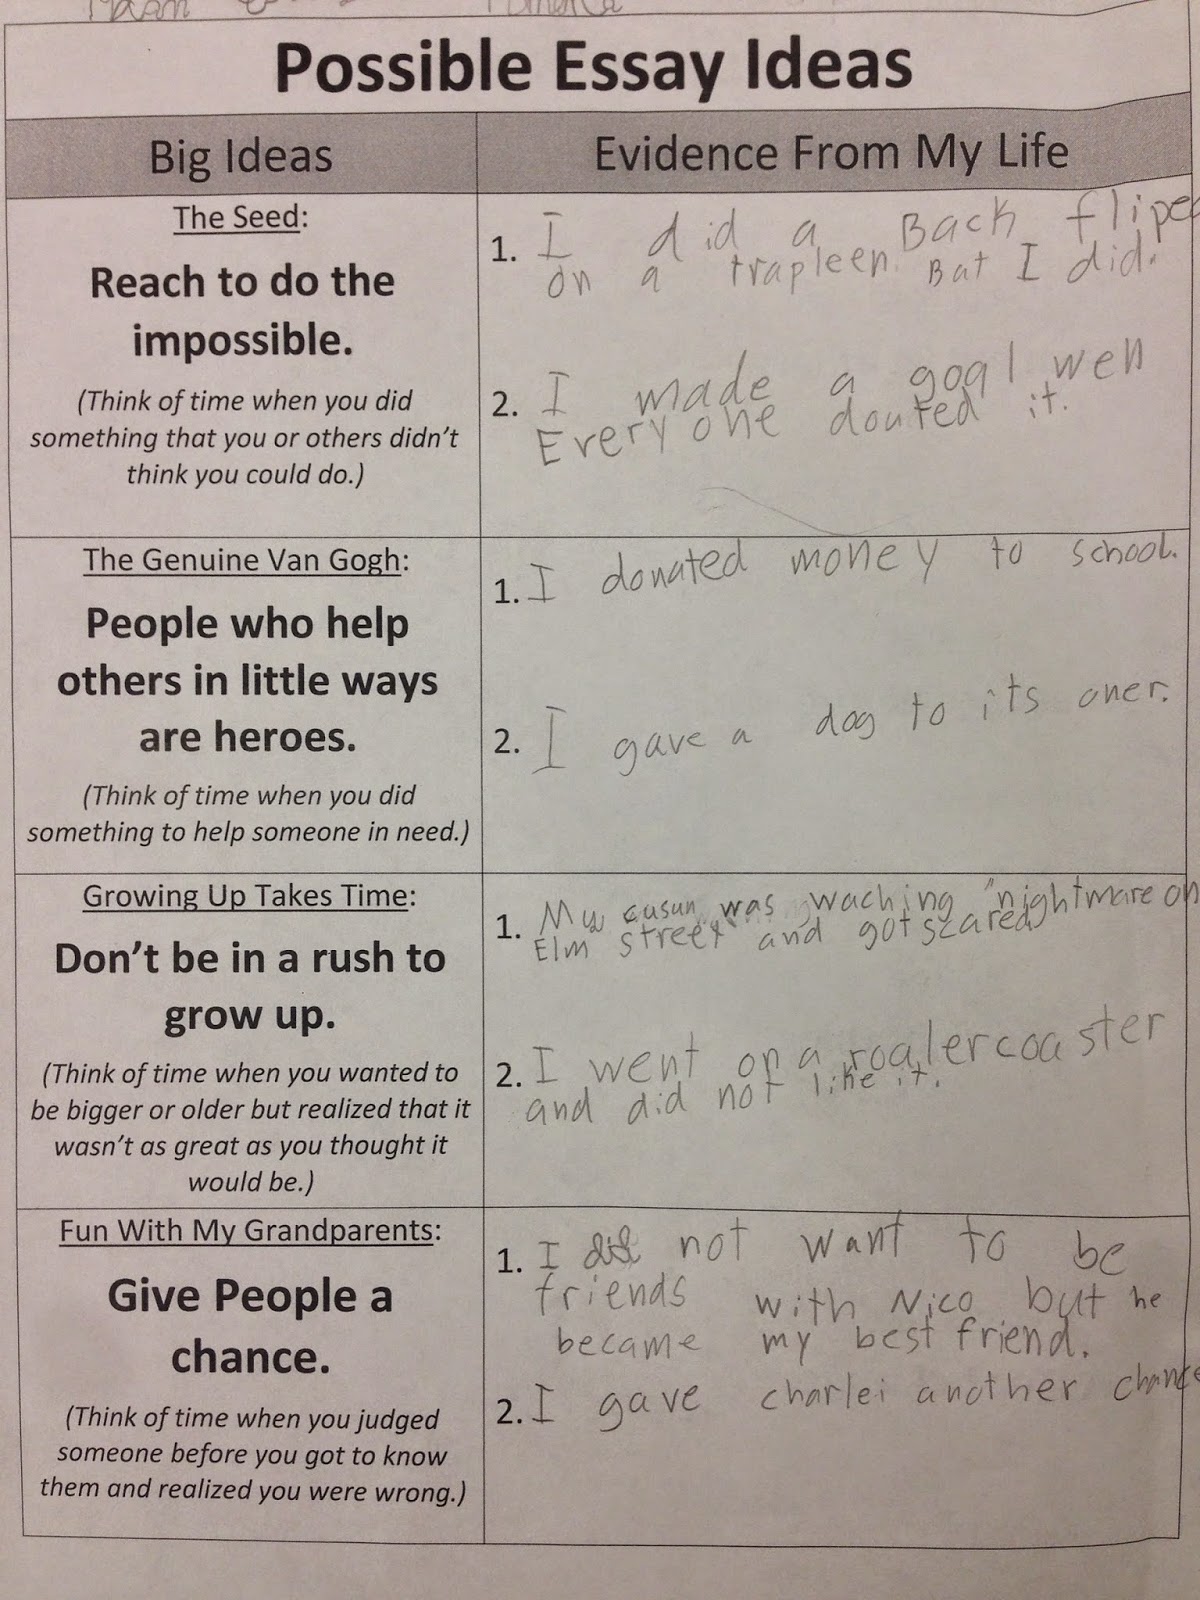 Possible Essay Ideas
Big Ideas
Evidence From My Life
The Seed:
Reach to do the
impossible.
(Think of time when you did
something that you or others didn't
think you could do.)
1. I did a Back fliped
on a trapleen. But I did.
2. I made a goal wen
Every one douted it.
The Genuine Van Gogh:
People who help
others in little ways
are heroes.
(Think of time when you did
something to help someone in need.)
1. I donated money to school.
2. I gave a dog to its oner.
Growing Up Takes Time:
Don't be in a rush to
grow up.
(Think of time when you wanted to
be bigger or older but realized that it
wasn't as great as you thought it
would be.)
1. My cusun was waching "nightmare on
Elm street" and got scared
2. I went on a roalercoaster
and did not like it.
Fun With My Grandparents:
Give People a
chance.
(Think of time when you judged
someone before you got to know
them and realized you were wrong.)
1. I did not want to be
friends with Nico but he
became my best friend.
2. I gave charlei another chance